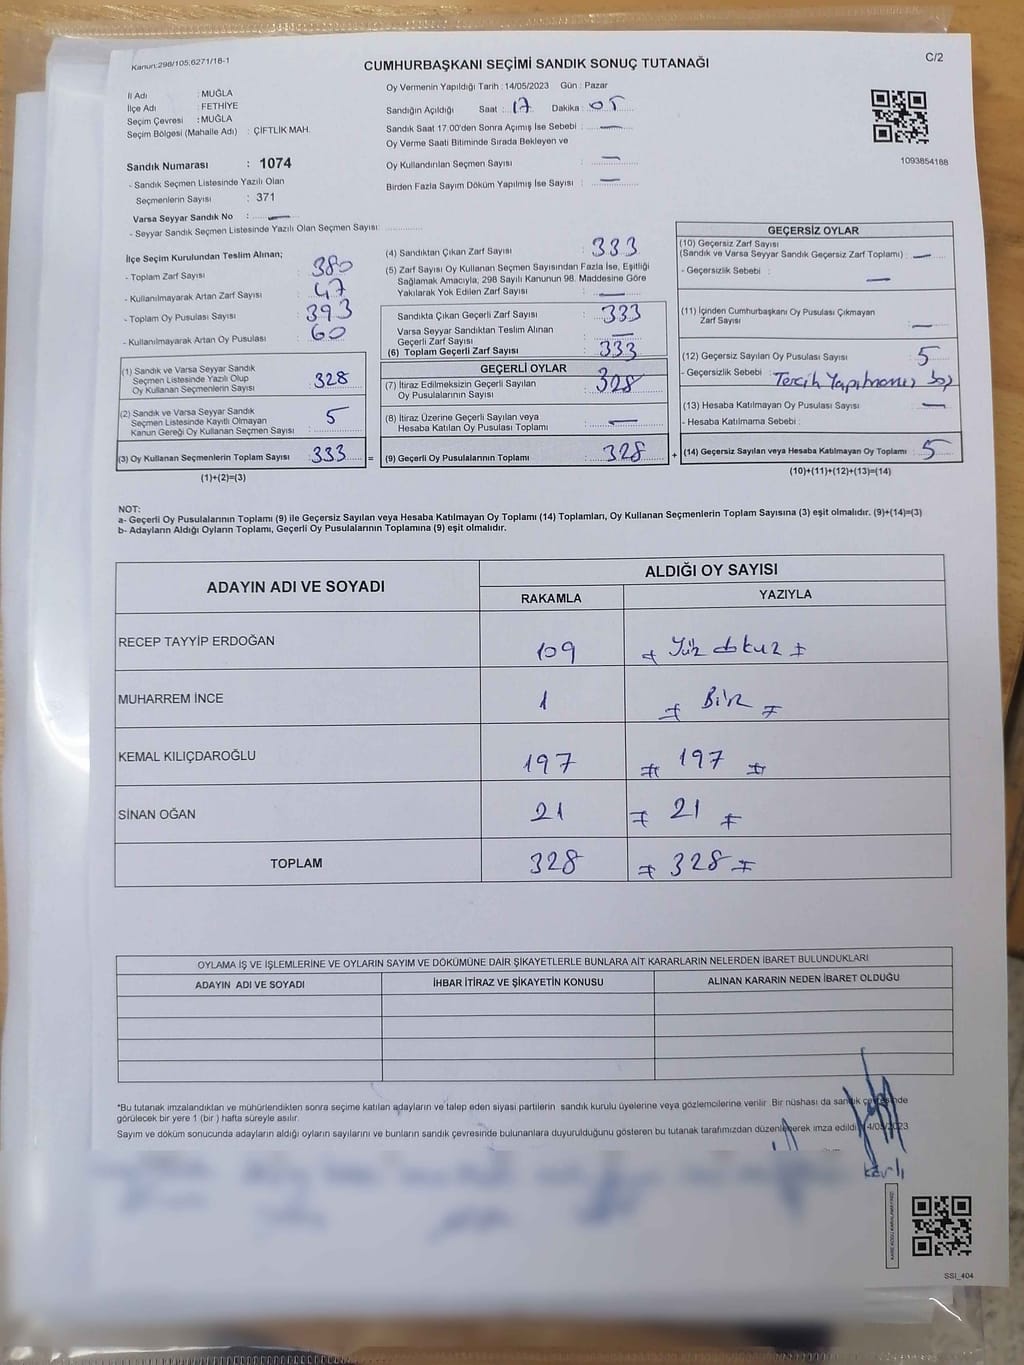 Kanun:298/105,6271/18-1
CUMHURBAŞKANI SEÇİMİ SANDIK SONUÇ TUTANAĞI
C/2
İl Adı : MUĞLA
İlçe Adı : FETHİYE
Seçim Çevresi : MUĞLA
Seçim Bölgesi (Mahalle Adı) : ÇİFTLİK MAH.
Sandık Numarası : 1074
- Sandık Seçmen Listesinde Yazılı Olan
Seçmenlerin Sayısı : 371
Varsa Seyyar Sandık No : —
- Seyyar Sandık Seçmen Listesinde Yazılı Olan Seçmen Sayısı:
Oy Vermenin Yapıldığı Tarih : 14/05/2023 Gün : Pazar
Sandığın Açıldığı Saat : 17 Dakika : 05
Sandık Saat 17.00'den Sonra Açımış İse Sebebi : —
Oy Verme Saati Bitiminde Sırada Bekleyen ve
Oy Kullandırılan Seçmen Sayısı : —
Birden Fazla Sayım Döküm Yapılmış İse Sayısı : —
1093854188
İlçe Seçim Kurulundan Teslim Alınan;
- Toplam Zarf Sayısı : 380
- Kullanılmayarak Artan Zarf Sayısı : 47
- Toplam Oy Pusulası Sayısı : 393
- Kullanılmayarak Artan Oy Pusulası : 60
(1) Sandık ve Varsa Seyyar Sandık
Seçmen Listesinde Yazılı Olup
Oy Kullanan Seçmenlerin Sayısı : 328
(2) Sandık ve Varsa Seyyar Sandık
Seçmen Listesinde Kayıtlı Olmayan
Kanun Gereği Oy Kullanan Seçmen Sayısı : 5
(3) Oy Kullanan Seçmenlerin Toplam Sayısı : 333
(1)+(2)=(3)
(4) Sandıktan Çıkan Zarf Sayısı : 333
(5) Zarf Sayısı Oy Kullanan Seçmen Sayısından Fazla İse, Eşitliği
Sağlamak Amacıyla, 298 Sayılı Kanunun 98. Maddesine Göre
Yakılarak Yok Edilen Zarf Sayısı : —
Sandıkta Çıkan Geçerli Zarf Sayısı : 333
Varsa Seyyar Sandıktan Teslim Alınan
Geçerli Zarf Sayısı : —
(6) Toplam Geçerli Zarf Sayısı : 333
GEÇERLİ OYLAR
(7) İtiraz Edilmeksizin Geçerli Sayılan
Oy Pusulalarının Sayısı : 328
(8) İtiraz Üzerine Geçerli Sayılan veya
Hesaba Katılan Oy Pusulası Toplamı : —
= (9) Geçerli Oy Pusulalarının Toplamı : 328
GEÇERSİZ OYLAR
(10) Geçersiz Zarf Sayısı
(Sandık ve Varsa Seyyar Sandık Geçersiz Zarf Toplamı) : —
- Geçersizlik Sebebi : —
(11) İçinden Cumhurbaşkanı Oy Pusulası Çıkmayan
Zarf Sayısı : —
(12) Geçersiz Sayılan Oy Pusulası Sayısı : 5
- Geçersizlik Sebebi : Tercih Yapılmamış boş
(13) Hesaba Katılmayan Oy Pusulası Sayısı : —
- Hesaba Katılmama Sebebi :
+ (14) Geçersiz Sayılan veya Hesaba Katılmayan Oy Toplamı : 5
(10)+(11)+(12)+(13)=(14)
NOT:
a- Geçerli Oy Pusulalarının Toplamı (9) ile Geçersiz Sayılan veya Hesaba Katılmayan Oy Toplamı (14) Toplamları, Oy Kullanan Seçmenlerin Toplam Sayısına (3) eşit olmalıdır. (9)+(14)=(3)
b- Adayların Aldığı Oyların Toplamı, Geçerli Oy Pusulalarının Toplamına (9) eşit olmalıdır.
ADAYIN ADI VE SOYADI
ALDIĞI OY SAYISI
RAKAMLA YAZIYLA
RECEP TAYYİP ERDOĞAN 109 Yüz dokuz
MUHARREM İNCE 1 Bir
KEMAL KILIÇDAROĞLU 197 197
SİNAN OĞAN 21 21
TOPLAM 328 328
OYLAMA İŞ VE İŞLEMLERİNE VE OYLARIN SAYIM VE DÖKÜMÜNE DAİR ŞİKAYETLERLE BUNLARA AİT KARARLARIN NELERDEN İBARET BULUNDUKLARI
ADAYIN ADI VE SOYADI İHBAR İTİRAZ VE ŞİKAYETİN KONUSU ALINAN KARARIN NEDEN İBARET OLDUĞU
*Bu tutanak imzalandıktan ve mühürlendikten sonra seçime katılan adayların ve talep eden siyasi partilerin sandık kurulu üyelerine veya gözlemcilerine verilir. Bir nüshası da sandık çevresinde
görülecek bir yere 1 (bir ) hafta süreyle asılır.
Sayım ve döküm sonucunda adayların aldığı oyların sayılarını ve bunların sandık çevresinde bulunanlara duyurulduğunu gösteren bu tutanak tarafımızdan düzenlenerek imza edildi. 14/05/2023
SSI_404